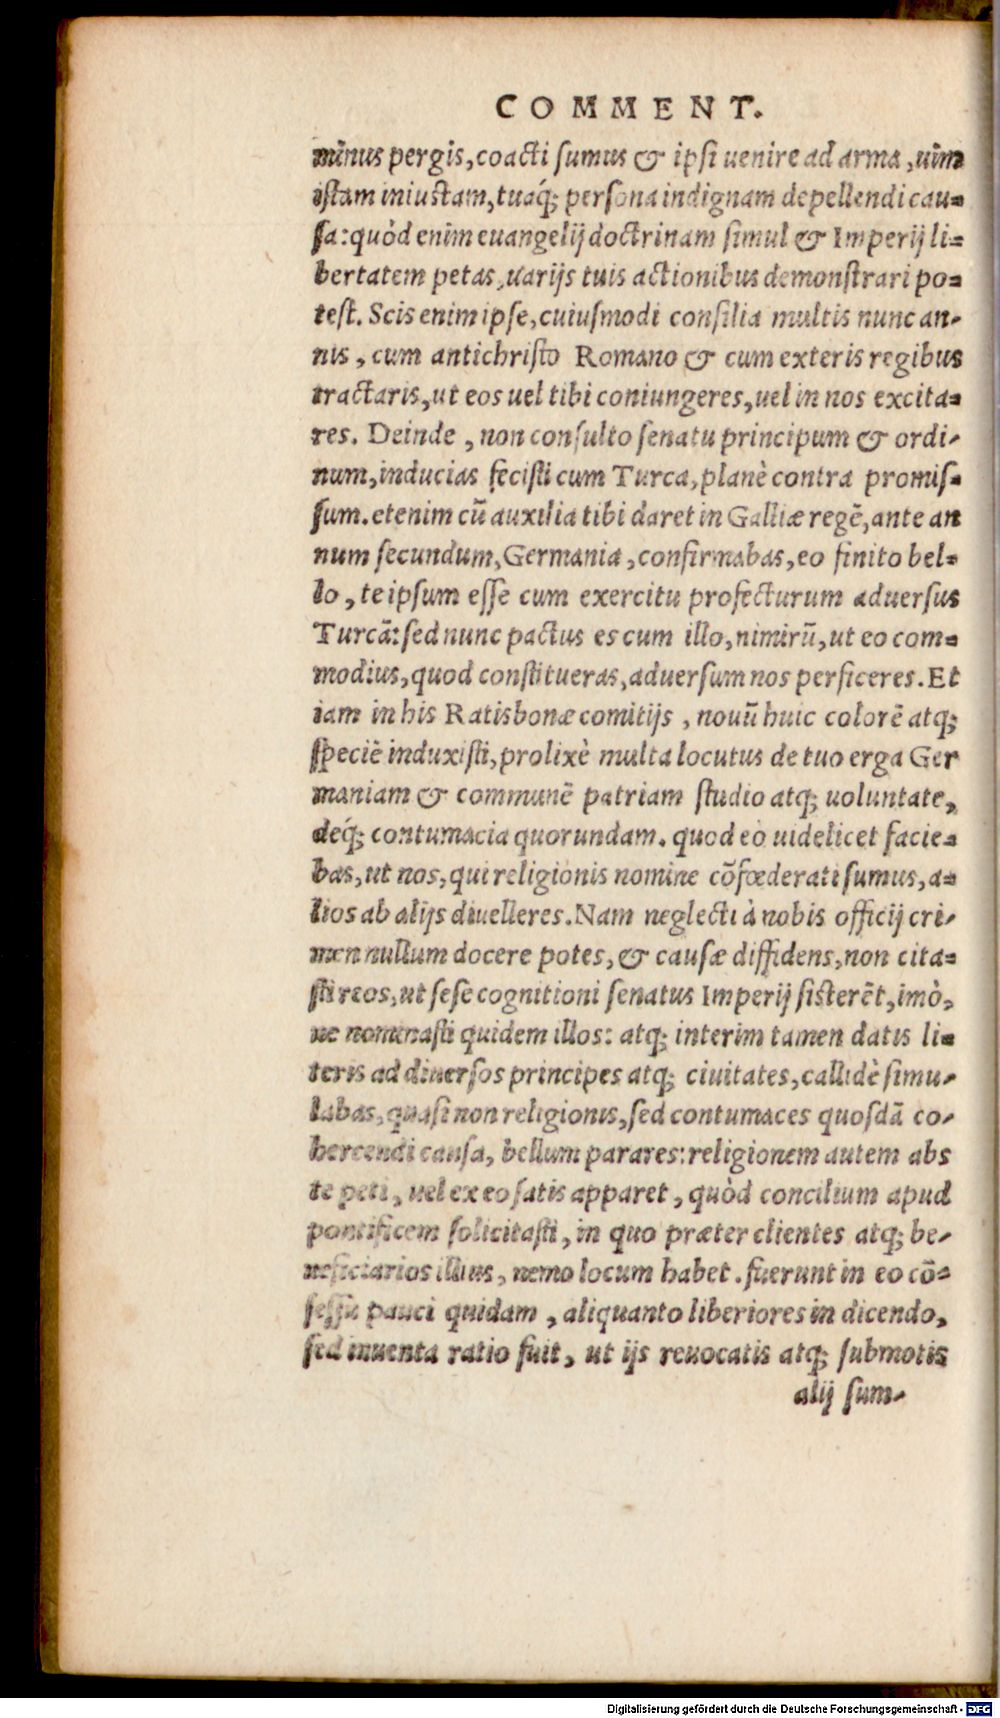 COMMENT.
minus pergis, coacti sumus & ipsi uenire ad arma, uim
istam iniustam, tuaq́; persona indignam depellendi cau-
sa: quòd enim euangelij doctrinam simul & Imperij li-
bertatem petas, uarijs tuis actionibus demonstrari po-
test. Scis enim ipse, cuiusmodi consilia multis nunc an-
nis, cum antichristo Romano & cum exteris regibus
tractaris, ut eos uel tibi coniungeres, uel in nos excita-
res. Deinde, non consulto senatu principum & ordi-
num, inducias fecisti cum Turca, planè contra promis-
sum. etenim cū auxilia tibi daret in Galliæ regē, ante an
num secundum, Germania, confirmabas, eo finito bel-
lo, te ipsum esse cum exercitu profecturum aduersus
Turcā: sed nunc pactus es cum illo, nimirū, ut eo com-
modius, quod constitueras, aduersum nos perficeres. Et
iam in his Ratisbonæ comitijs, nouū huic colorē atq;
speciē induxisti, prolixè multa locutus de tuo erga Ger
maniam & communē patriam studio atq; uoluntate,
deq́; contumacia quorundam. quod eò uidelicet facie-
bas, ut nos, qui religionis nomine cōfœderati sumus, a-
lios ab alijs diuelleres. Nam neglecti à nobis officij cri-
men nullum docere potes, & causæ diffidens, non cita-
sti reos, ut sese cognitioni senatus Imperij sisterēt, imò,
ne nominasti quidem illos: atq; interim tamen datis li-
teris ad diuersos principes atq; ciuitates, callidè simu-
labas, quasi non religionis, sed contumaces quosdā co-
hercendi causa, bellum parares: religionem autem abs
te peti, uel ex eo satis apparet, quòd concilium apud
pontificem solicitasti, in quo præter clientes atq; be-
neficiarios illius, nemo locum habet. fuerunt in eo cō-
sessu pauci quidam, aliquanto liberiores in dicendo,
sed inuenta ratio fuit, ut ijs reuocatis atq; submotis
alij sum-
Digitalisierung gefördert durch die Deutsche Forschungsgemeinschaft - DFG